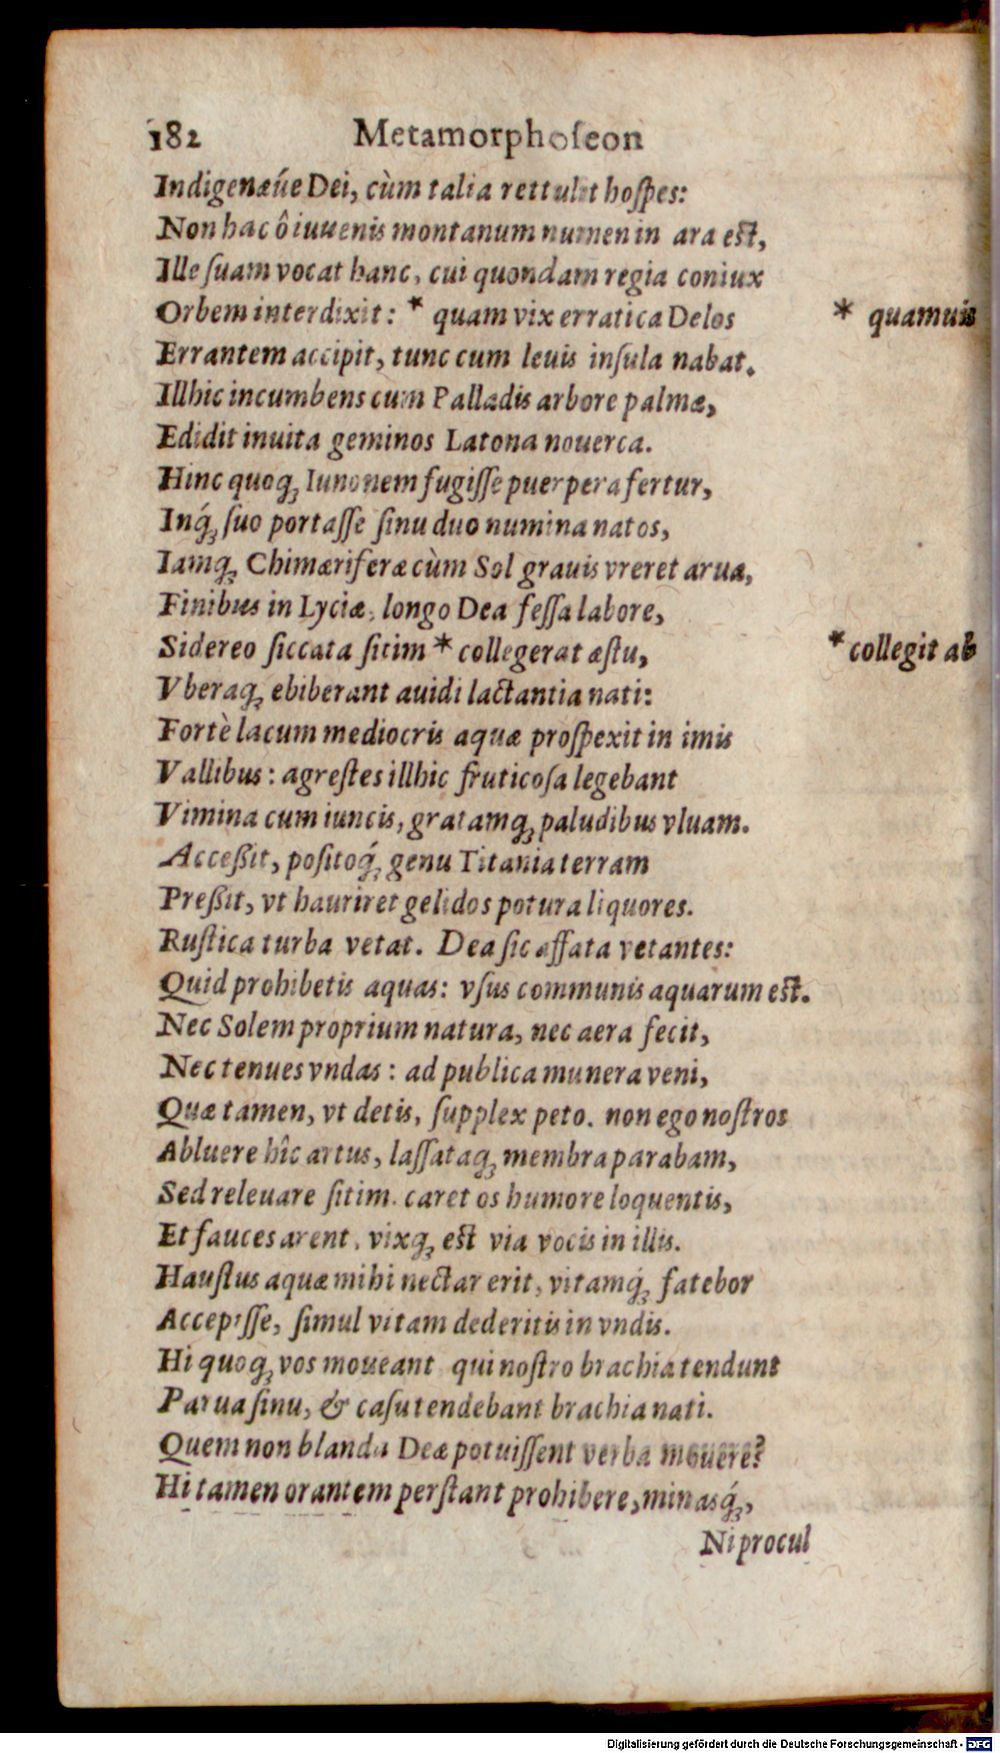 182 Metamorphoſeon
Indigenæúe Dei, cùm talia rettulit hoſpes:
Non hac ô iuuenis montanum numen in ara eſt,
Ille ſuam vocat hanc, cui quondam regia coniux
Orbem interdixit: * quam vix erratica Delos * quamuis
Errantem accipit, tunc cum leuis inſula nabat.
Illhic incumbens cum Palladis arbore palmæ,
Edidit inuita geminos Latona nouerca.
Hinc quoqꝫ Iunonem fugiſſe puerpera fertur,
Inqꝫ́ ſuo portaſſe ſinu duo numina natos,
Iamqꝫ Chimæriferæ cùm Sol grauis vreret arua,
Finibus in Lyciæ, longo Dea feſſa labore,
Sidereo ſiccata ſitim * collegerat æſtu, * collegit ab
Vberaqꝫ ebiberant auidi lactantia nati:
Fortè lacum mediocris aquæ proſpexit in imis
Vallibus: agreſtes illhic fruticoſa legebant
Vimina cum iuncis, gratamqꝫ paludibus vluam.
Acceßit, poſitoqꝫ́ genu Titania terram
Preßit, vt hauriret gelidos potura liquores.
Ruſtica turba vetat. Dea ſic affata vetantes:
Quid prohibetis aquas: vſus communis aquarum eſt.
Nec Solem proprium natura, nec aera fecit,
Nec tenues vndas: ad publica munera veni,
Quæ tamen, vt detis, ſupplex peto. non ego noſtros
Abluere hîc artus, laſſataqꝫ membra parabam,
Sed releuare ſitim. caret os humore loquentis,
Et fauces arent, vixqꝫ eſt via vocis in illis.
Hauſtus aquæ mihi nectar erit, vitamqꝫ́ fatebor
Accepiſſe, ſimul vitam dederitis in vndis.
Hi quoqꝫ vos moueant qui noſtro brachia tendunt
Parua ſinu, & caſu tendebant brachia nati.
Quem non blanda Deæ potuiſſent verba mouere?
Hi tamen orantem perſtant prohibere, minasqꝫ́,
Ni procul
Digitalisierung gefördert durch die Deutsche Forschungsgemeinschaft - DFG